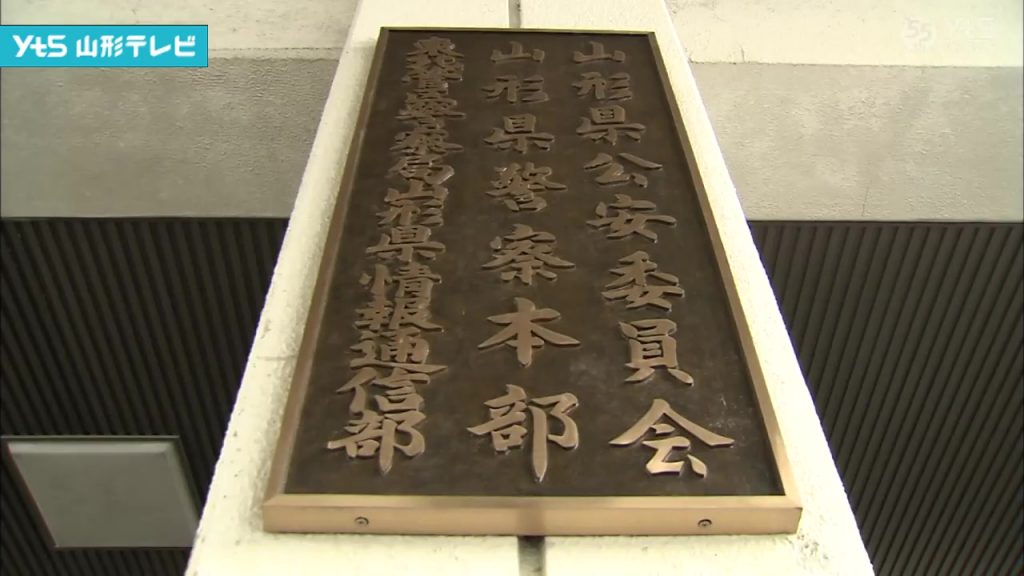 yts 山形テレビ
山形県公安委員会
山形県警察本部
東北管区警察局山形県情報通信部